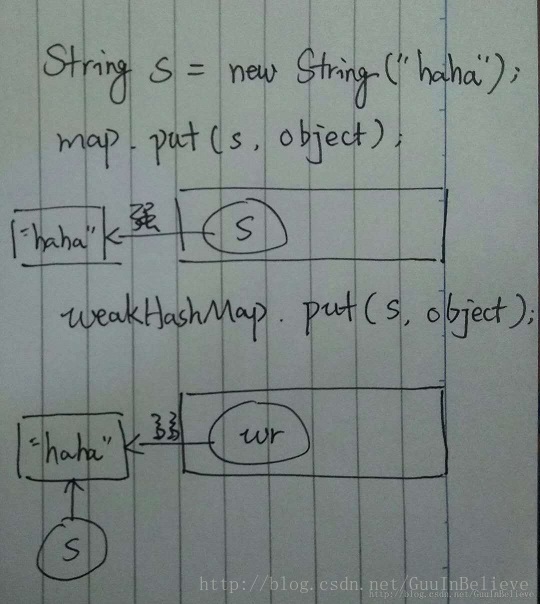 String s = new String("haha");
map.put(s, object);
强
"haha"
s
weakHashMap.put(s, object);
弱
"haha"
wr
s
http://blog.csdn.net/GuuInBelieve
http://blog.csdn.net/GuuInBelieve